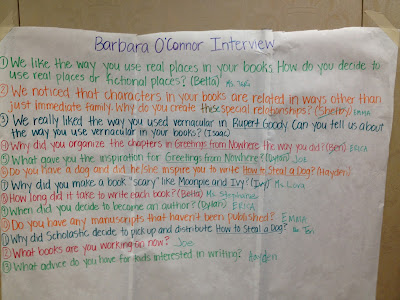 Barbara O'Connor Interview
① We like the way you use real places in your books How do you decide to
use real places or fictional places? (Bella)
② We noticed that characters in your books are related in ways other than
just immediate family. Why do you create these special relationships? (Shelby) EMMA
③ We really liked the way you used vernacular in Rupert Goody Can you tell us about
the way you use vernacular in your books? (Isaac)
④ Why did you organize the chapters in Greetings from Nowhere the way you did? (Ben) ERICA
⑤ What gave you the inspiration for Greetings from Nowhere? (Dylan) JOE
⑥ Do you have a dog and did he/she inspire you to write How to Steal a Dog? (Hayden)
⑦ Why did you make a book "scary" like Moonpie and Ivy? (Ivy) Ms. Lova
⑧ How long did it take to write each book? (Bella) Ms. Stephanie
⑨ When did you decide to become an author? (Dylan) ERICA
⑩ Do you have any manuscripts that haven't been published? EMMA
⑪ Why did Scholastic decide to pick up and distribute How to Steal a Dog?
⑫ What books are you working on now? Joe
⑬ What advice do you have for kids interested in writing? Hayden